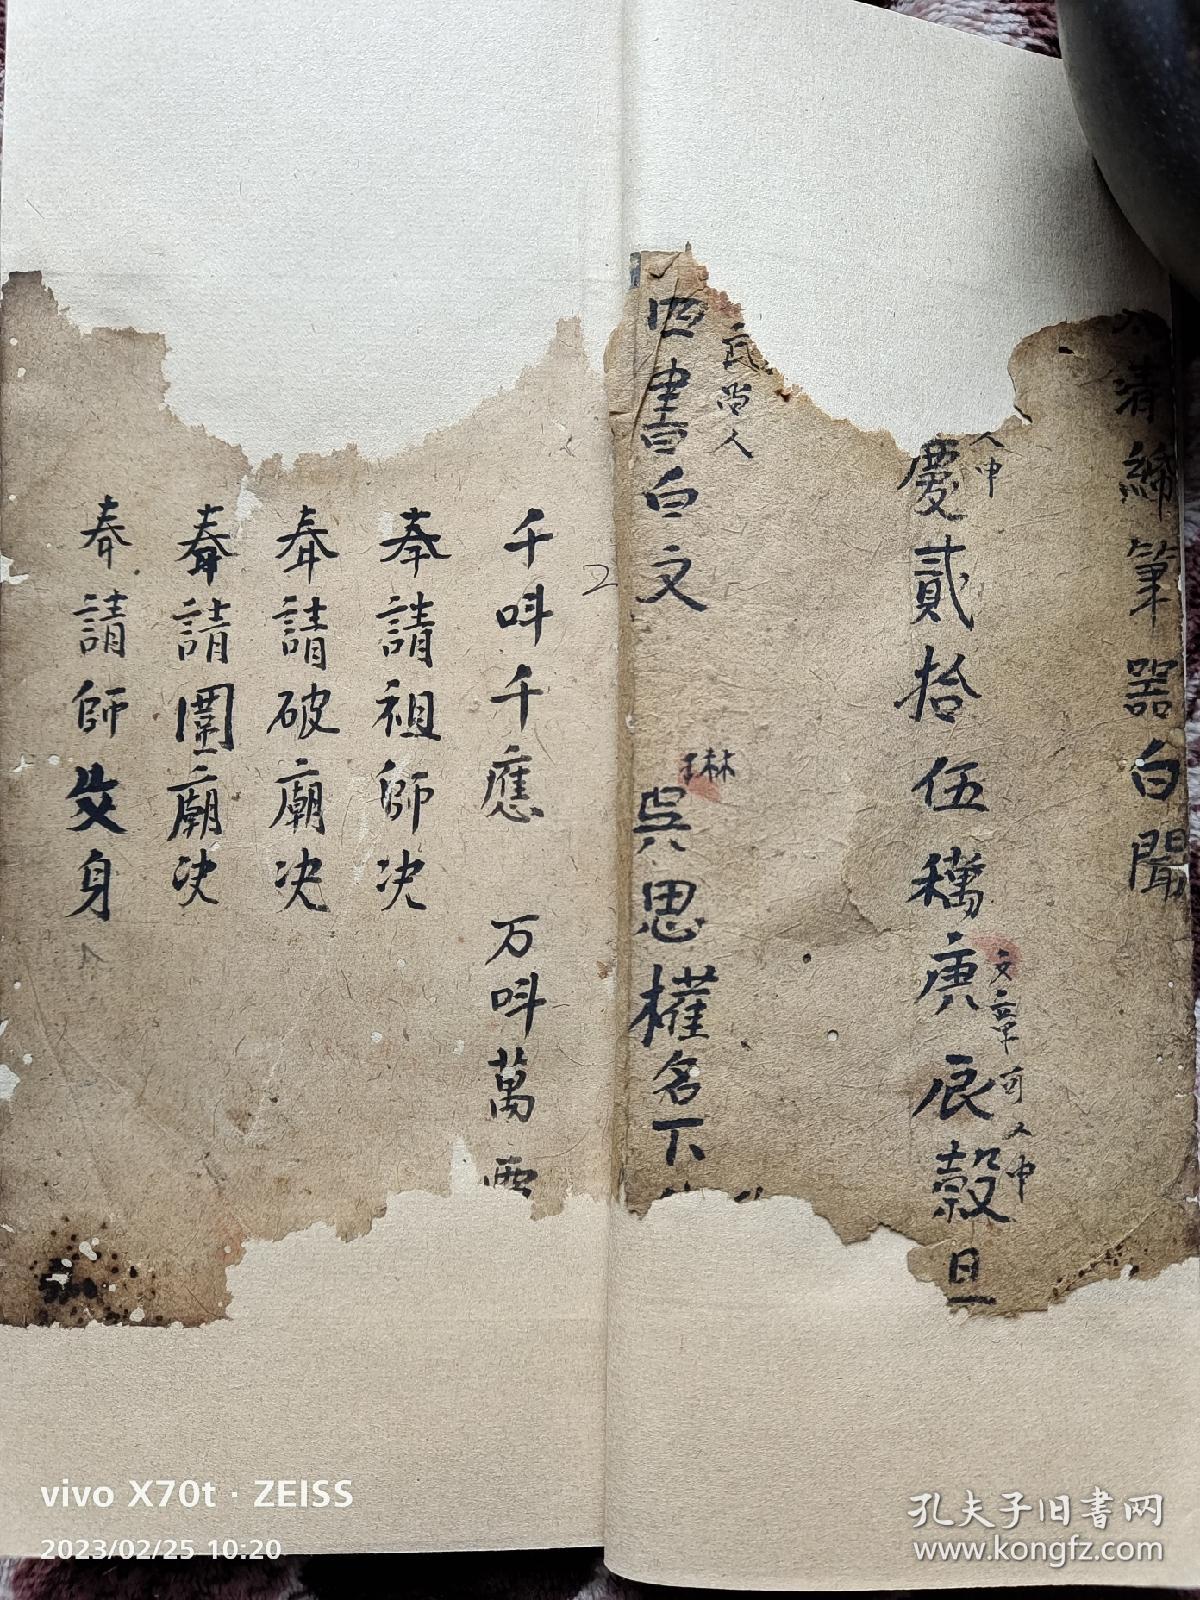 清締筆器白聞
人中
慶貳拾伍穐庚辰穀旦
文章可人中
尚人
四書白文
琳
吳思權名下
2
千呌千應 万呌萬
奉請祖師决
奉請破廟决
奉請圍廟决
奉請師父身
vivo X70t · ZEISS
2023/02/25 10:20
孔夫子旧书网
www.kongfz.com